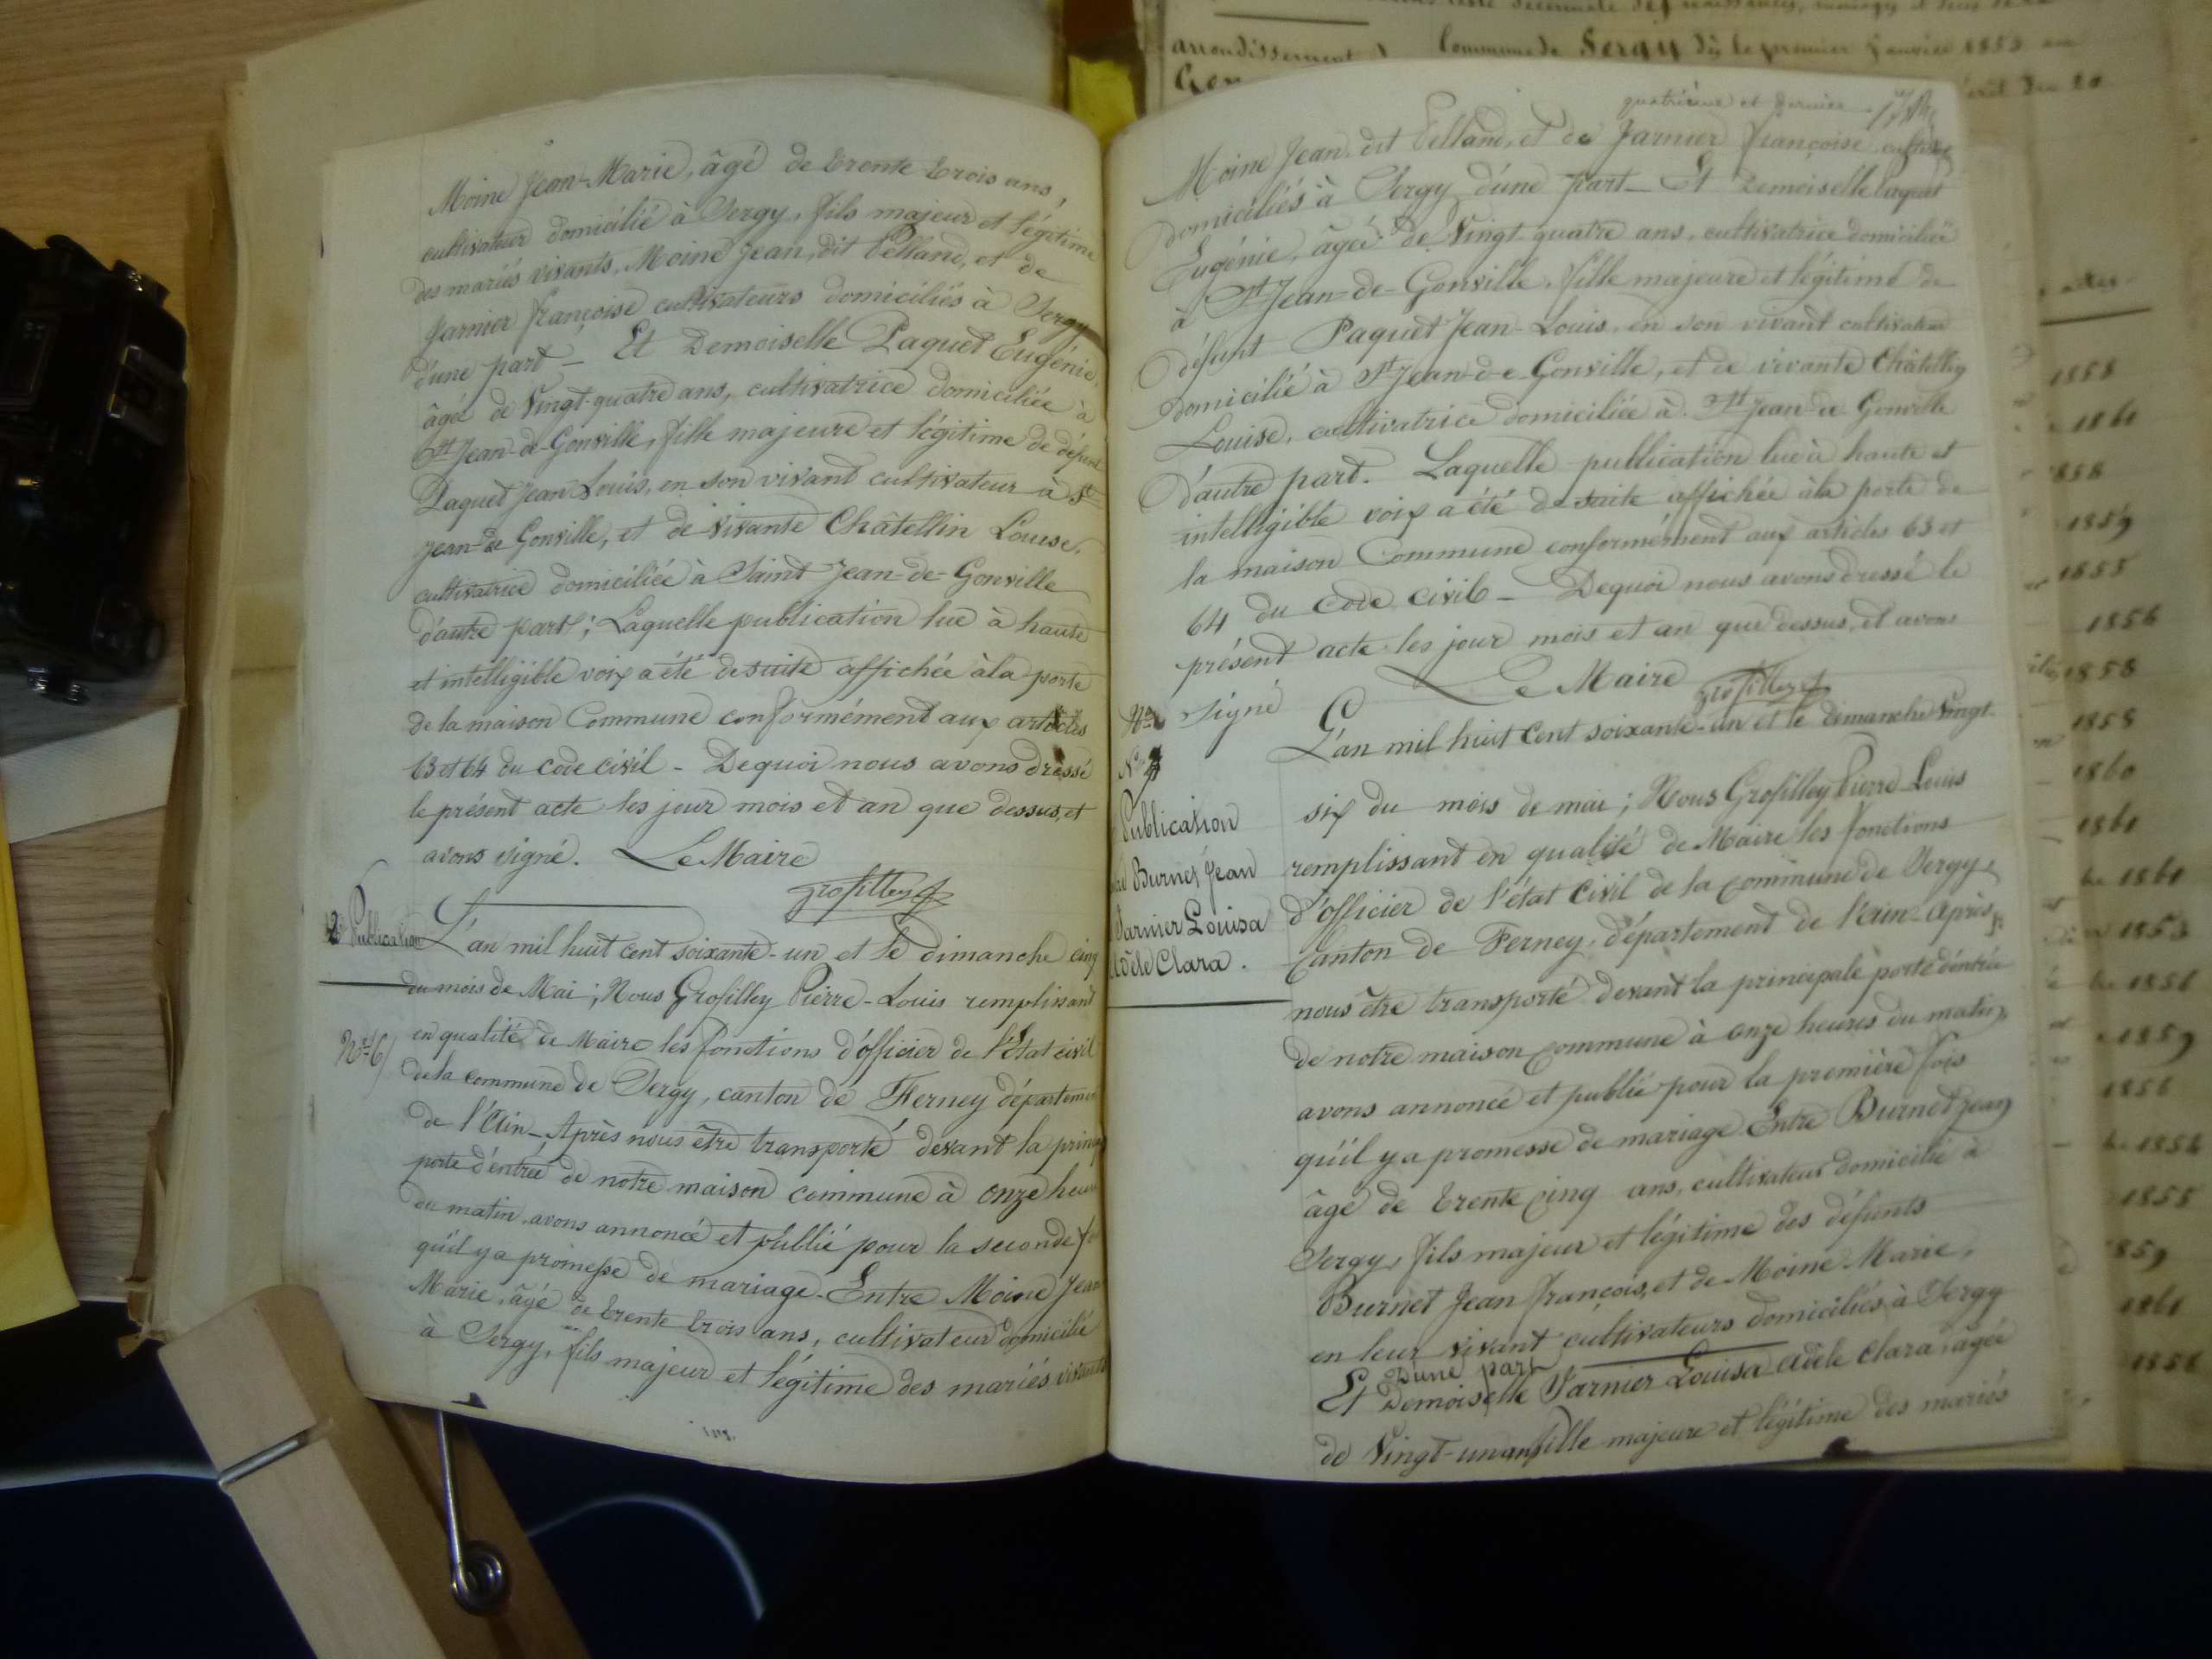 Moine Jean-Marie, âgé de trente trois ans,
cultivateur domicilié à Sergy, fils majeur et légitime
des mariés vivants, Moine Jean, dit Pelland, et de
Jarnier françoise cultivateurs domiciliés à Sergy
d'une part - Et Demoiselle Paquet Eugénie,
âgée de Vingt-quatre ans, cultivatrice domiciliée à
St Jean-de-Gonville, fille majeure et légitime de défunt
Paquet Jean Louis, en son vivant cultivateur à St
Jean-de Gonville, et de vivante Châtellin Louise,
cultivatrice domiciliée à Saint Jean-de-Gonville
d'autre part; Laquelle publication lue à haute
et intelligible voix a été de suite affichée à la porte
de la maison Commune conformément aux articles
63 et 64 du code civil - De quoi nous avons dressé
le présent acte les jour mois et an que dessus, et
avons signé. Le Maire
Grosfilley
2e Publication
L'an mil huit cent soixante-un et le dimanche cinq
du mois de Mai; Nous Grosfilley Pierre-Louis remplissant
No 6
en qualité de Maire les fonctions d'officier de l'État civil
de la commune de Sergy, canton de Ferney département
de l'Ain - Après nous être transporté devant la
porte d'entrée de notre maison commune à onze heures
du matin, avons annoncé et publié pour la seconde
qu'il y a promesse de mariage - Entre Moine Jean
Marie, âgé de trente trois ans, cultivateur domicilié
à Sergy, fils majeur et légitime des mariés vivants
quatrième et dernier
Moine Jean, dit Pelland, et de Jarnier françoise
domiciliés à Sergy d'une part - Et Demoiselle Paquet
Eugénie, âgée de Vingt-quatre ans, cultivatrice domiciliée
à St Jean-de-Gonville, fille majeure et légitime de
défunt Paquet Jean-Louis, en son vivant cultivateur
domicilié à St Jean-de-Gonville, et de vivante Châtellin
Louise, cultivatrice domiciliée à St Jean-de Gonville
d'autre part. Laquelle publication lue à haute et
intelligible voix a été de suite affichée à la porte de
la maison Commune conformément aux articles 63 et
64 du code civil - De quoi nous avons dressé le
présent acte les jour mois et an que dessus, et avons
signé Le Maire
Grosfilley
No 7
Publication
Burnet Jean
Jarnier Louisa
Adèle Clara.
L'an mil huit cent soixante-un et le dimanche Vingt-
six du mois de mai; Nous Grosfilley Pierre-Louis
remplissant en qualité de Maire les fonctions
d'officier de l'état civil de la commune de Sergy,
Canton de Ferney, département de l'ain - Après
nous être transporté devant la principale porte d'entrée
de notre maison commune à onze heures du matin,
avons annoncé et publié pour la première fois
qu'il y a promesse de mariage Entre Burnet Jean
âgé de trente cinq ans, cultivateur domicilié à
Sergy, fils majeur et légitime des défunts
Burnet Jean françois, et de Moine Marie,
en leur vivant cultivateurs domiciliés à Sergy
D'une part
Et Demoiselle Jarnier Louisa Adèle Clara, âgée
de Vingt-un ans, fille majeure et légitime des mariés
arrondissement
Commune de Sergy dès le premier Janvier 1853
Gex
1858
1861
1858
1859
1855
1856
1858
1858
1860
1861
1861
1853
1856
1859
1856
1856
1855
1859
1861
1856